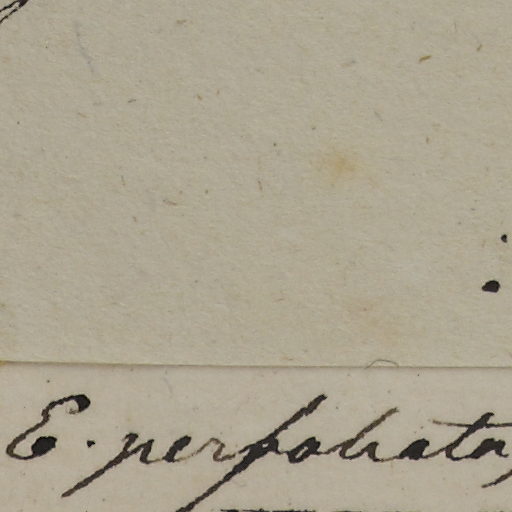 E. perfoliata,